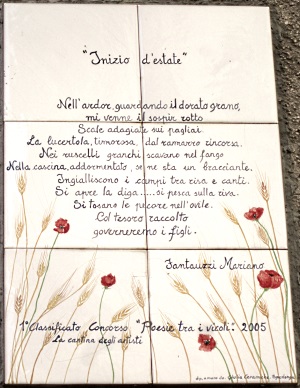 "Inizio d'estate"
Nell'ardor, guardando il dorato grano,
mi venne il sospir rotto
Scale adagiate sui pagliai
La lucertola, timorosa, dal ramarro rincorsa.
Nei ruscelli granchi scavano nel fango
Nella cascina, addormentato, se ne sta un bracciante.
Ingialliscono i campi tra risa e canti.
Si apre la diga.....si pesca sulla riva.
Si tosano le pecore nell'ovile.
Col tesoro raccolto
governeremo i figli.
Fantauzzi Mariano
1° Classificato Concorso "Poesie tra i vicoli". 2005
La cantina degli artisti